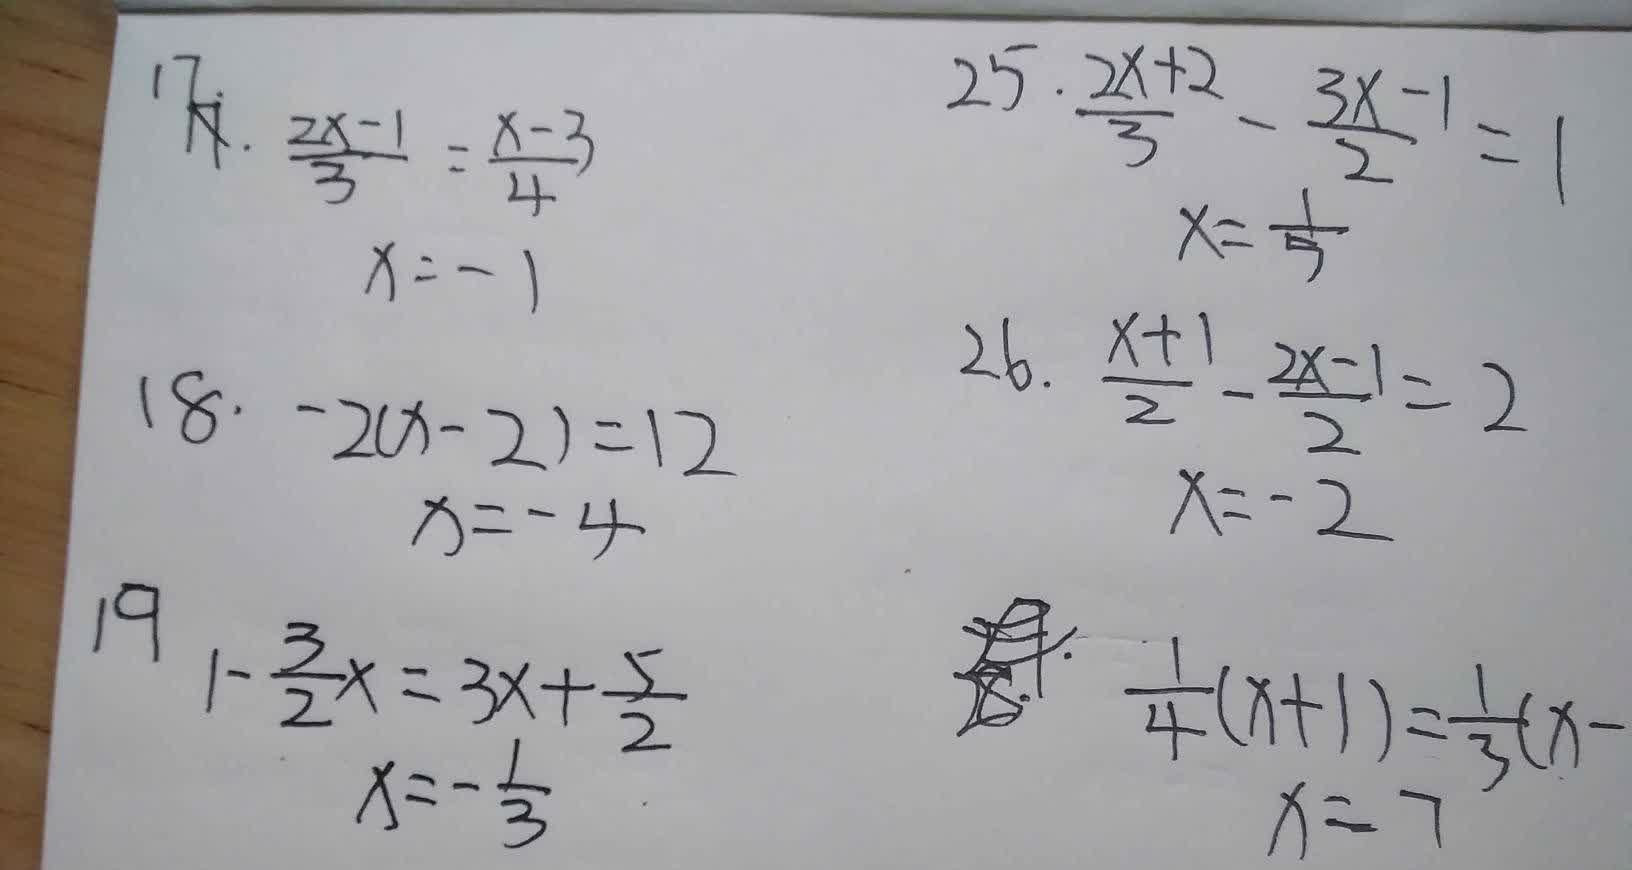 17. (2x-1)/3 = (x-3)/4
x = -1
18. -2(x-2) = 12
x = -4
19 1 - 3/2 x = 3x + 5/2
x = -1/3
25. (2x+2)/3 - (3x-1)/2 = 1
x = 1/5
26. (x+1)/2 - (2x-1)/2 = 2
x = -2
1/4 (x+1) = 1/3 (x-
x = 7